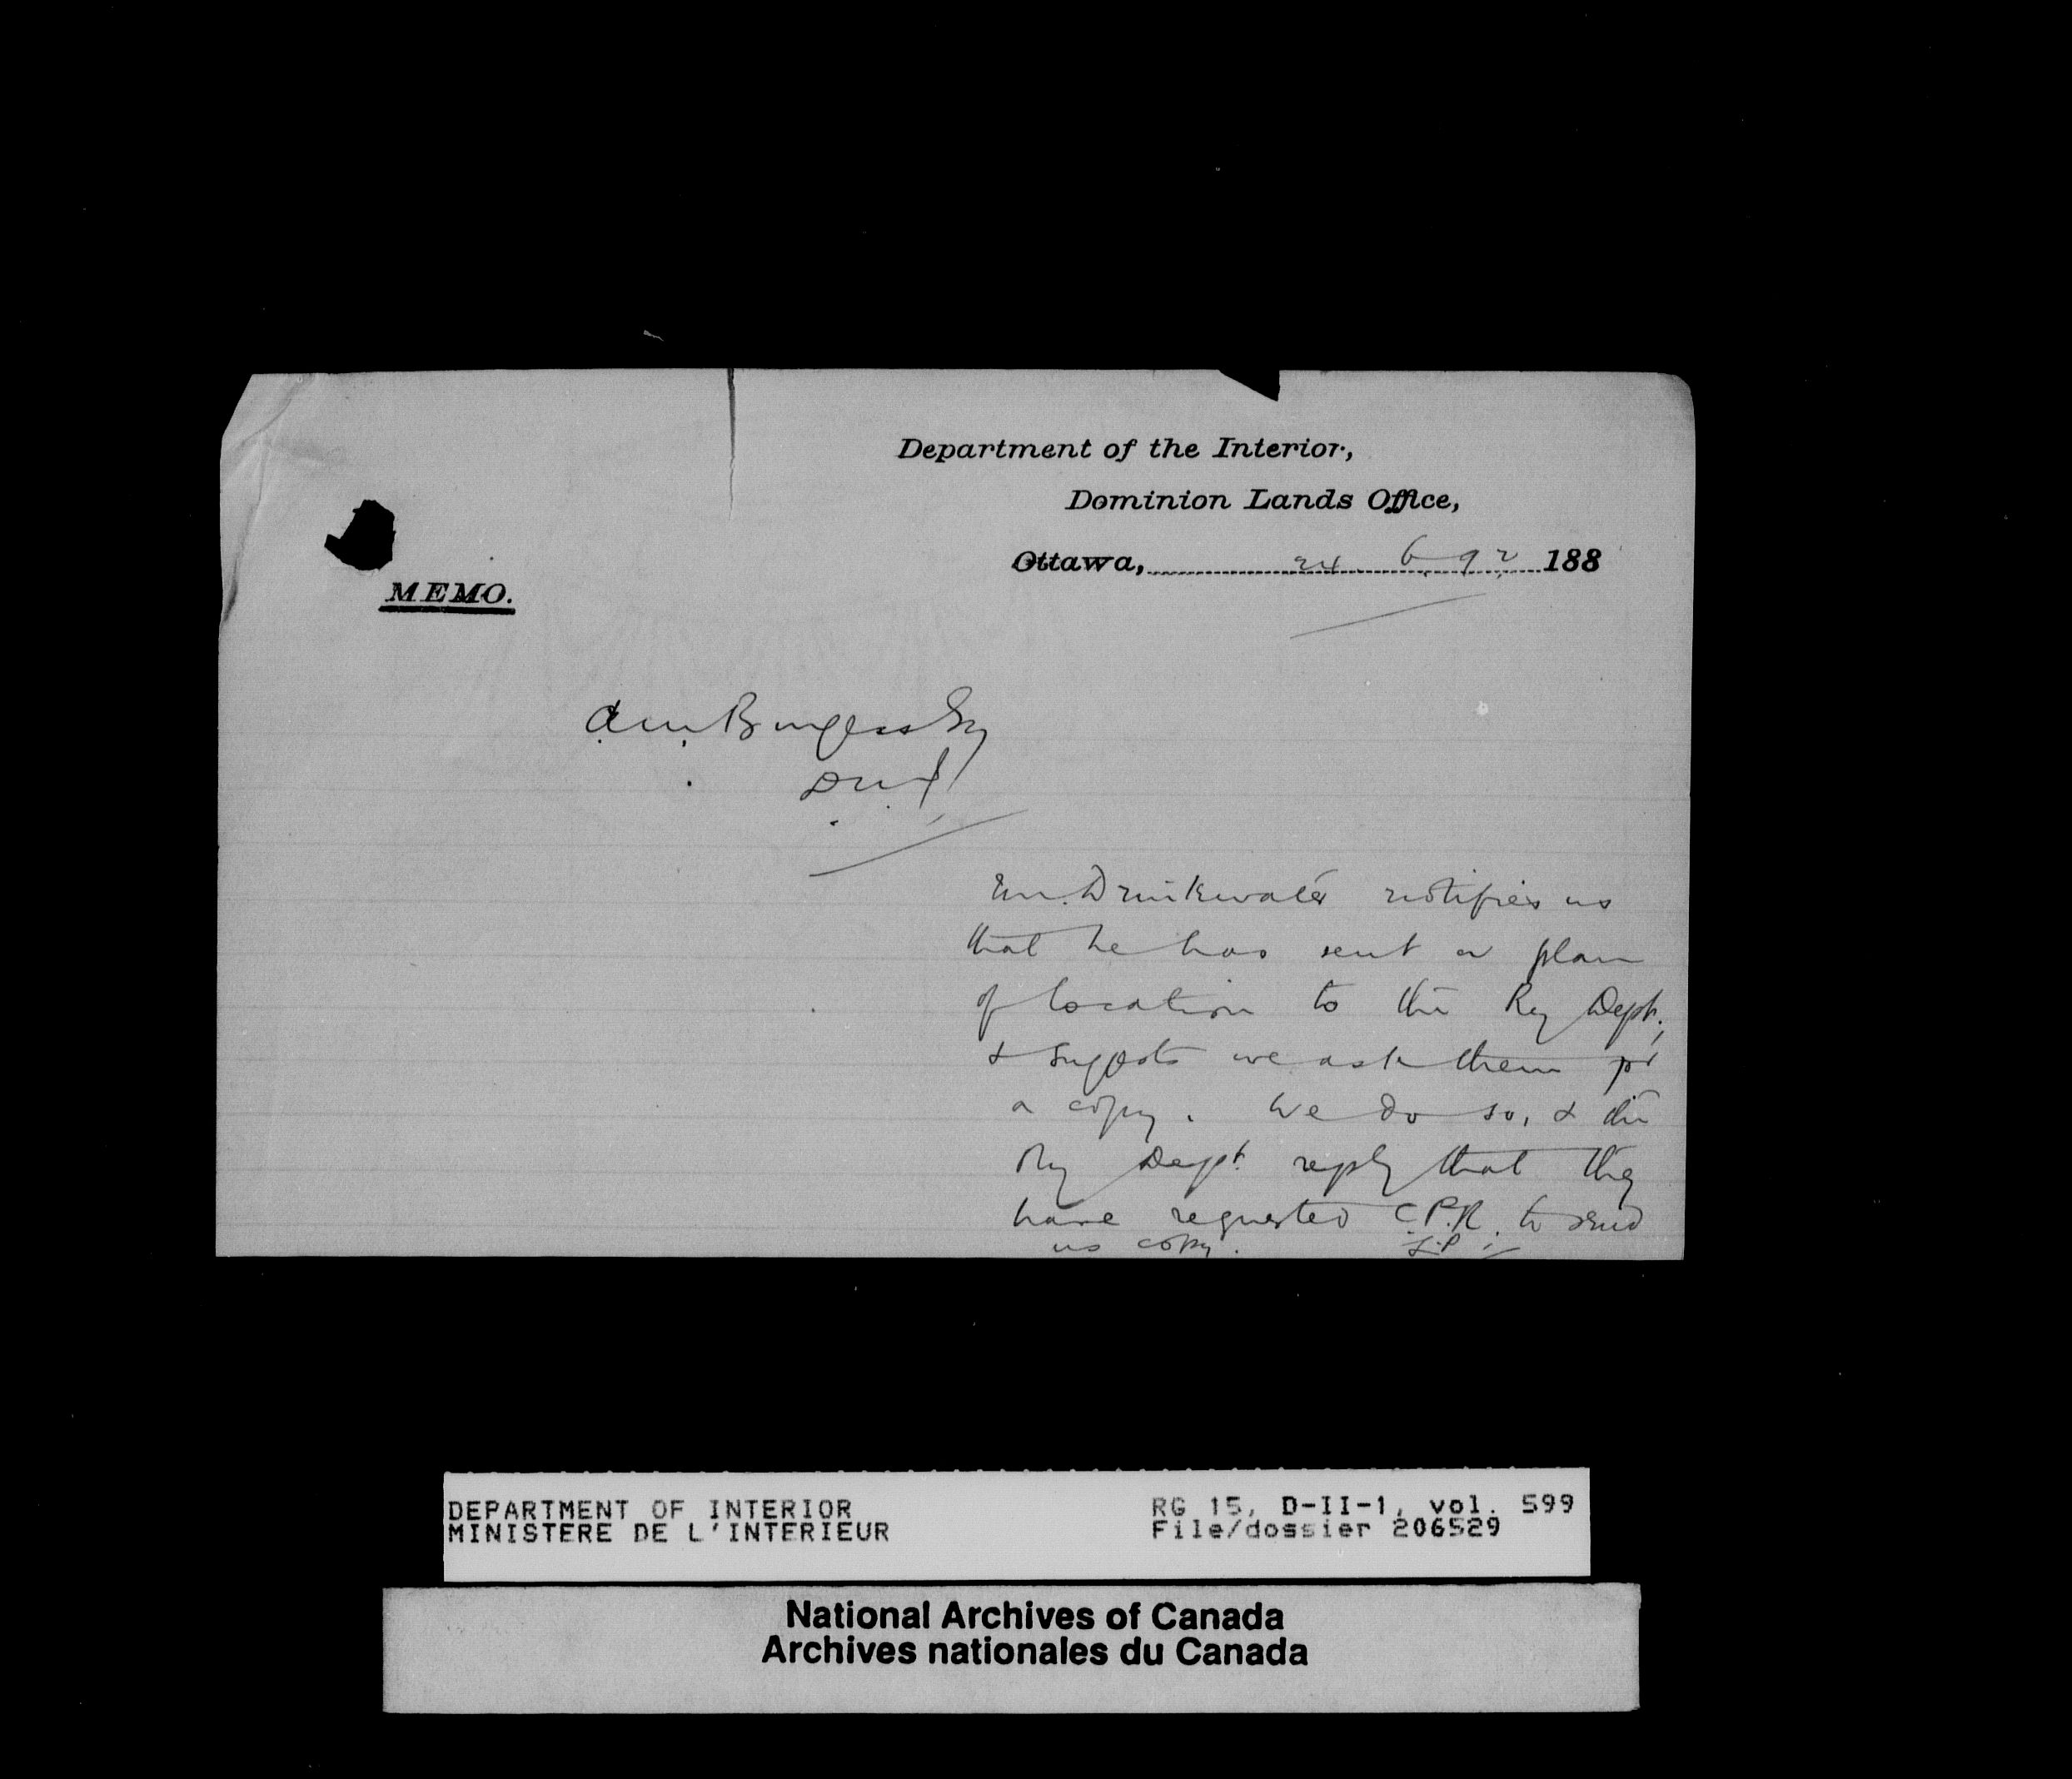 Department of the Interior,
Dominion Lands Office,
Ottawa, 24. 6. 92. 188
MEMO.
A. M. Burgess Esq
D.M.I.
Mr. Drinkwater notifies us
that he has sent a plan
of location to the Ry Dept.,
& suggests we ask them for
a copy. We do so, & the
Ry Dept. reply that they
have requested C.P.R. to send
us copy.
DEPARTMENT OF INTERIOR
MINISTERE DE L'INTERIEUR
RG 15, D-II-1, vol. 599
File/dossier 206529
National Archives of Canada
Archives nationales du Canada